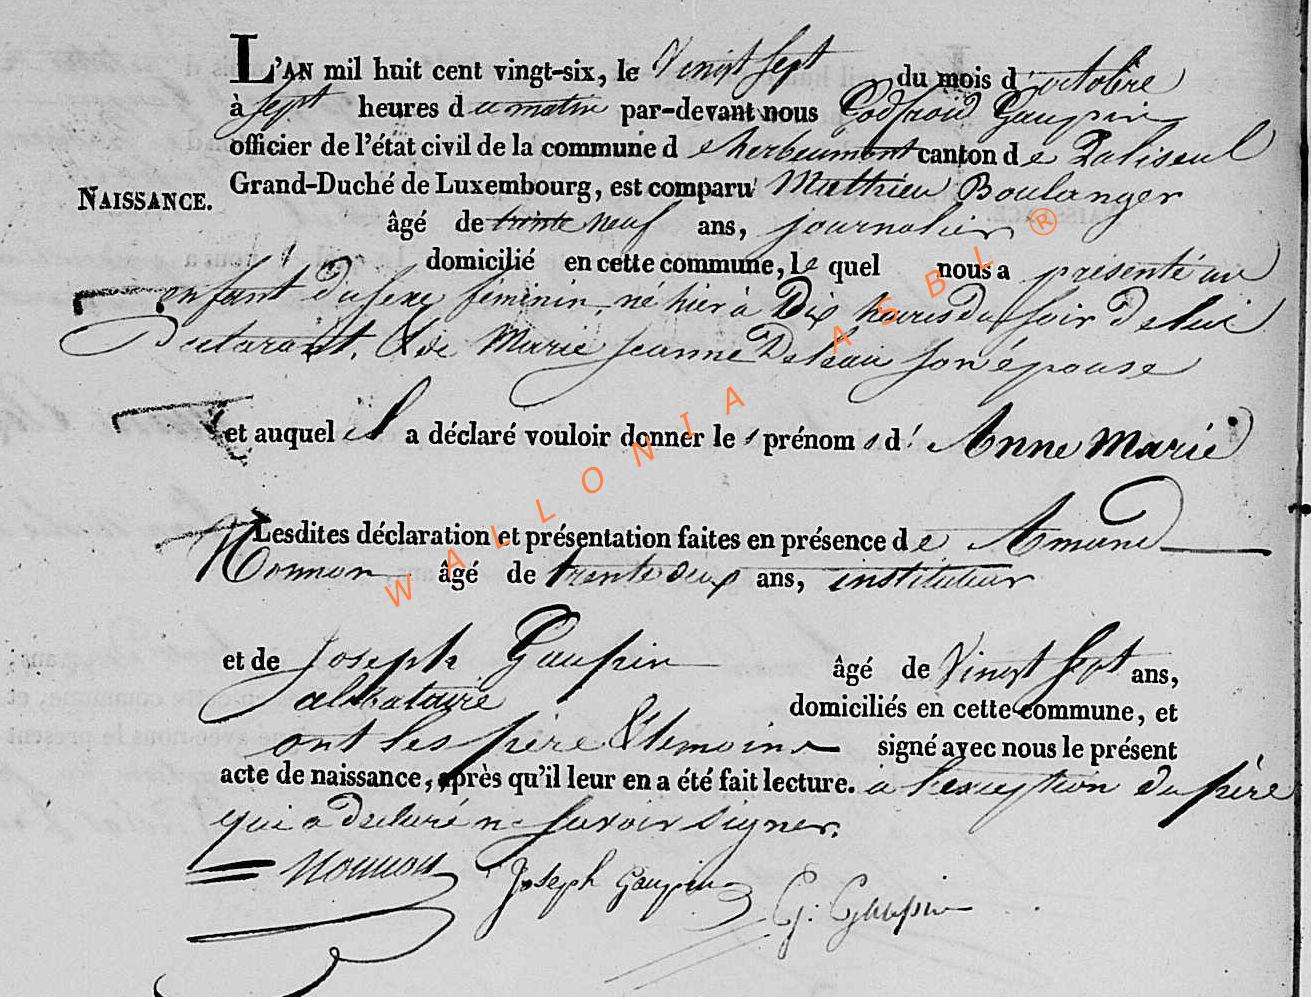 L'AN mil huit cent vingt-six, le Vingt sept du mois d'octobre
à sept heures du matin par-devant nous Godfroid Gaupin
officier de l'état civil de la commune d'herbeumont canton de Paliseul
NAISSANCE. Grand-Duché de Luxembourg, est comparu Mathieu Boulanger
âgé de trente neuf ans, journalier
domicilié en cette commune, le quel nous a présenté un
enfant du sexe féminin, né hier à Dix heures du soir De lui
Declarant, & de Marie Jeanne son épouse
et auquel il a déclaré vouloir donner les prénoms d' Anne Marie
Lesdites déclaration et présentation faites en présence de Amand
Nonnon âgé de trente deux ans, instituteur
et de Joseph Gaupin âgé de Vingt sept ans,
domiciliés en cette commune, et
ont les père & temoins signé avec nous le présent
acte de naissance, après qu'il leur en a été fait lecture. a l'exception du père
qui a declaré ne savoir signer.
Nonnon Joseph Gaupin G: Gaupin
WALLONIA ASBL ®